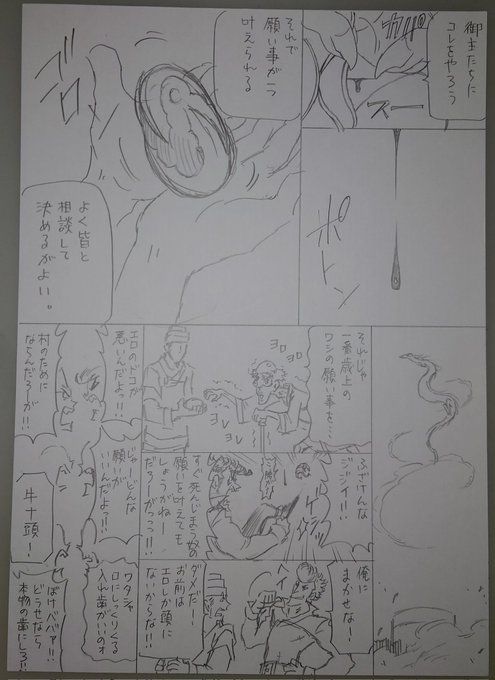 御主たちに
コレをやろう
カパッ
スー
ポトン
それで
願い事が一つ
叶えられる
ゴロゴロ
よく皆と
相談して
決めるがよい。
それじゃ
一番歳上の
ワシの願い事を…
ヨロ
ヨロ
ヨレ
ヨレ
ふざけんな
ジジイ!!!
すぐ死んじまう奴の
願いを叶えても
しょうがねー
だろーがっっ!!
俺に
まかせなー!
ダメだー!
お前は
エロしか頭に
ないからな!!
エロのドコが
悪いんだよっ!!
村のために
ならんだろーが!!
じゃーどんな
願いが
いいんだよっ!!
牛十頭!
ワタシャ
口にしっくりくる
入れ歯がいいのォ
ぼけババァ!!
どうせなら
本物の歯にしろ!!